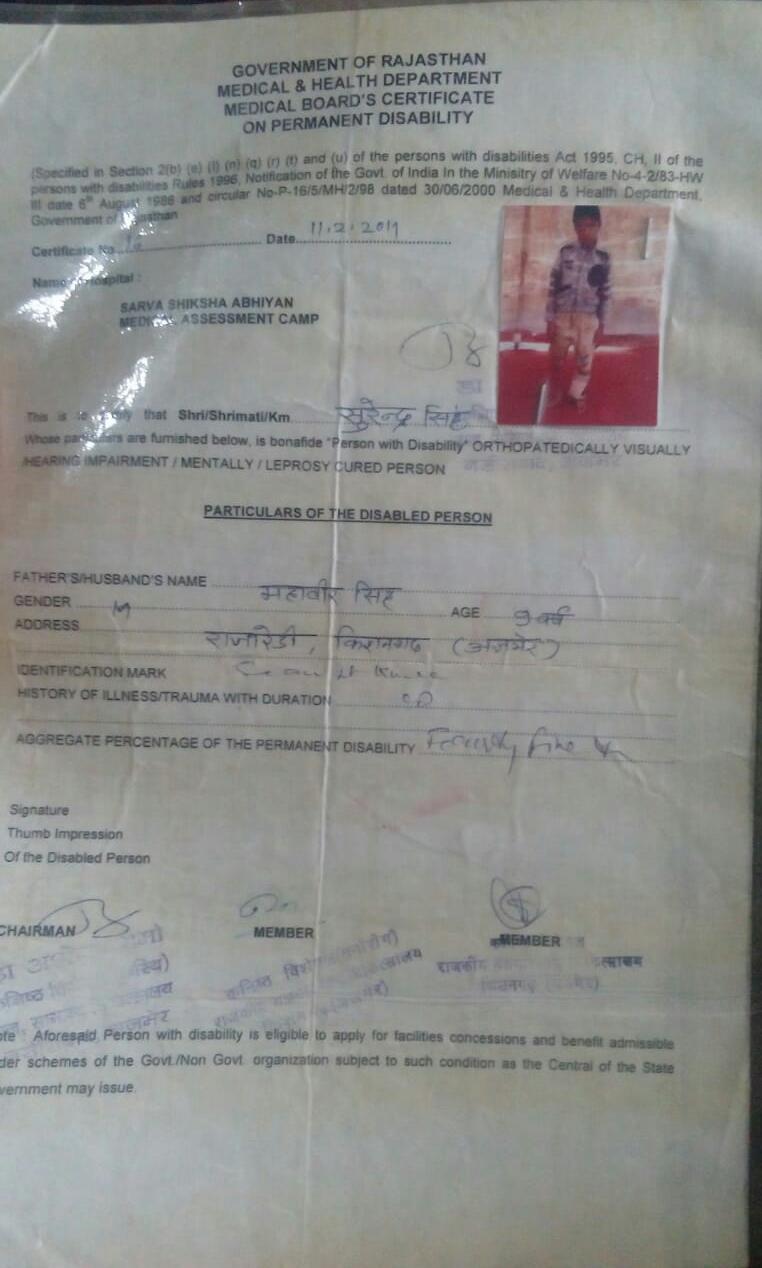 GOVERNMENT OF RAJASTHAN
MEDICAL & HEALTH DEPARTMENT
MEDICAL BOARD'S CERTIFICATE
ON PERMANENT DISABILITY
(Specified in Section 2(b) (e) (l) (n) (q) (r) (t) and (u) of the persons with disabilities Act 1995, CH, II of the
persons with disabilities Rules 1996, Notification of the Govt. of India In the Minisitry of Welfare No-4-2/83-HW
III date 6th August 1986 and circular No-P-16/5/MH/2/98 dated 30/06/2000 Medical & Health Department,
Government of Rajasthan
Certificate No. Date 11.2.2011
Name of Hospital :
SARVA SHIKSHA ABHIYAN
MEDICAL ASSESSMENT CAMP
This is to certify that Shri/Shrimati/Km. सुरेन्द्र सिंह
Whose particulars are furnished below, is bonafide "Person with Disability" ORTHOPATEDICALLY VISUALLY
/HEARING IMPAIRMENT / MENTALLY / LEPROSY CURED PERSON
PARTICULARS OF THE DISABLED PERSON
FATHER'S/HUSBAND'S NAME महावीर सिंह
GENDER M AGE 9 वर्ष
ADDRESS
राजारेडी, किशनगढ (अजमेर)
IDENTIFICATION MARK
HISTORY OF ILLNESS/TRAUMA WITH DURATION
AGGREGATE PERCENTAGE OF THE PERMANENT DISABILITY
Signature
Thumb Impression
Of the Disabled Person
CHAIRMAN MEMBER MEMBER
Aforesaid Person with disability is eligible to apply for facilities concessions and benefit admissible
schemes of the Govt./Non Govt. organization subject to such condition as the Central of the State
may issue.